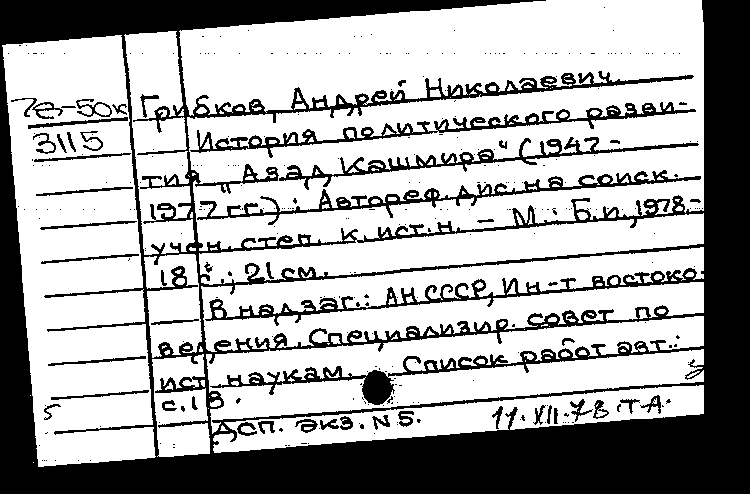 7в-50к Грибков, Андрей Николаевич.
3115 История политического разви-
тия „Азад Кашмира" (1947-
1977 гг.) : Автореф. дис. на соиск.
учен. степ. к. ист. н. - М. : Б.и., 1978.-
18 с.; 21 см.
В надзаг.: АН СССР, Ин-т востоко-
ведения. Специализир. совет по
ист. наукам. Список работ авт.:
с. 18.
ДСП. Экз. N 5. 11.XII.78. Т-А.